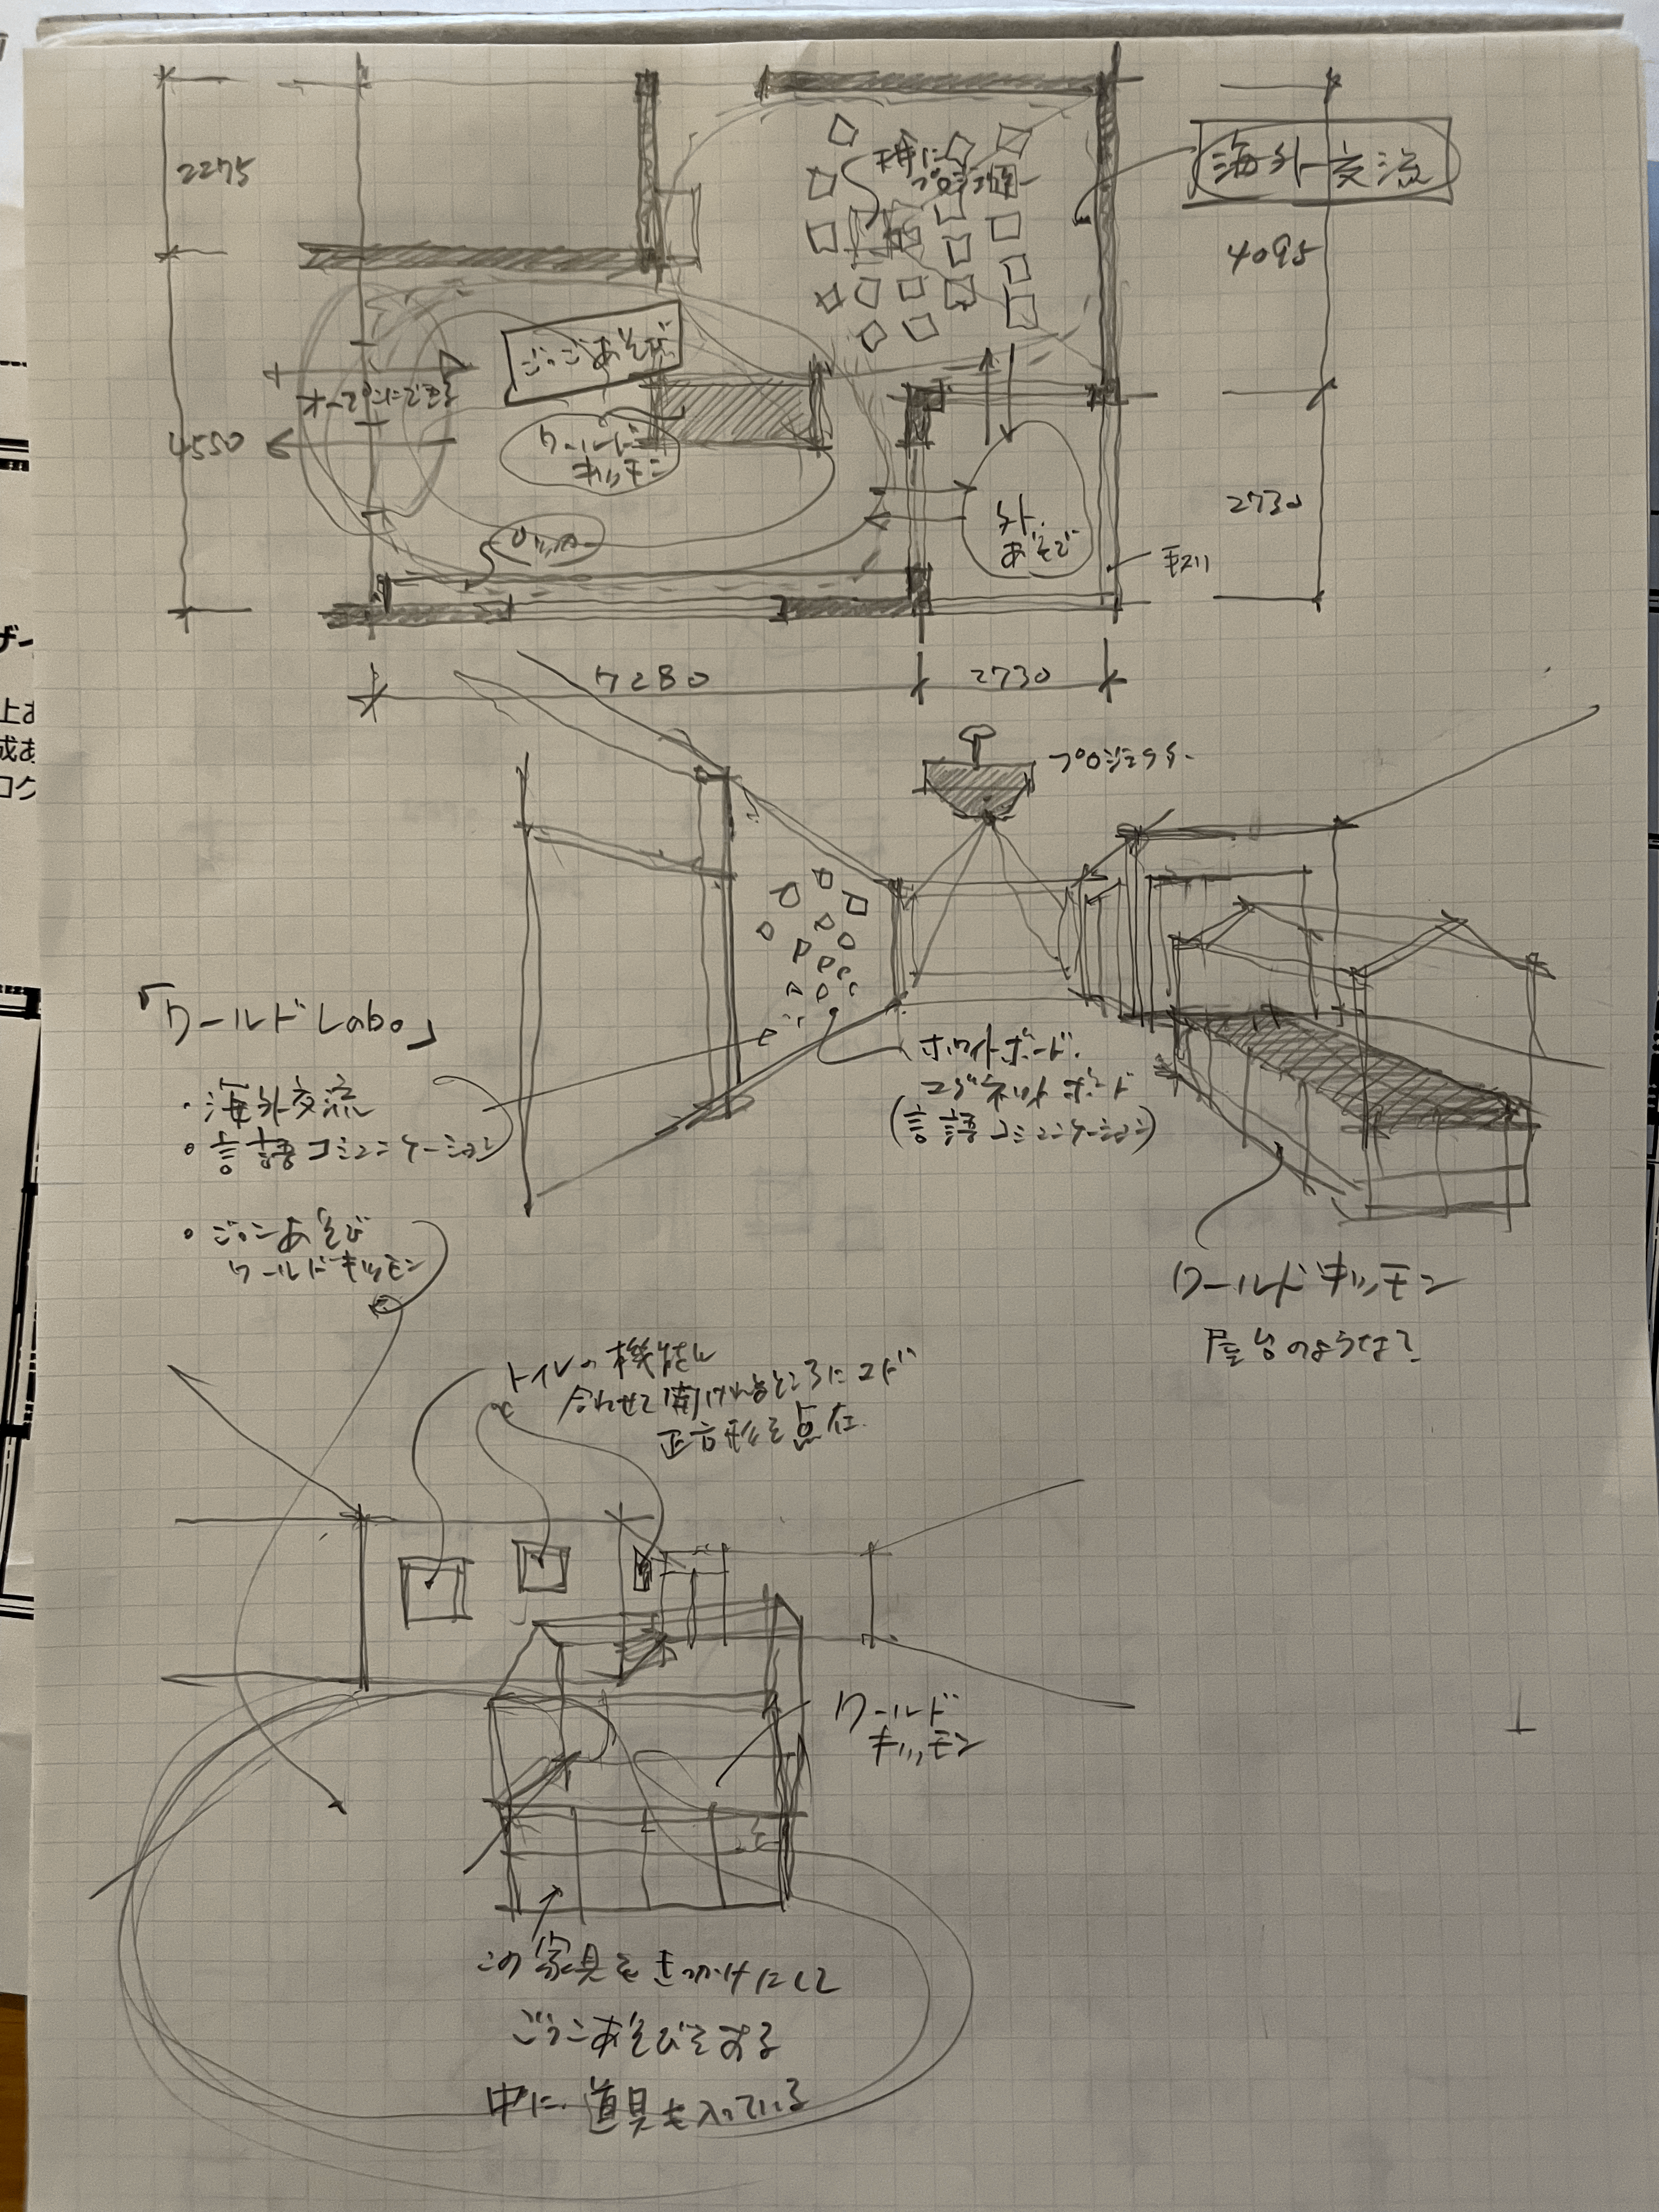 2275
海外交流
4095
ごっこあそび
オープンにできる
ワールド
キッチン
4550
外
あそび
手スリ
2730
7280
2730
プロジェクター
「ワールドLabo」
・海外交流
・言語コミュニケーション
・ごっこあそび
ワールドキッチン
ホワイトボード
マグネットボード
(言語コミュニケーション)
ワールドキッチン
屋台のような?
トイレの機能に
合わせて開けれるところにマド
正方形を点在
ワールド
キッチン
この家具をきっかけにして
ごっこあそびをする
中に道具も入っている